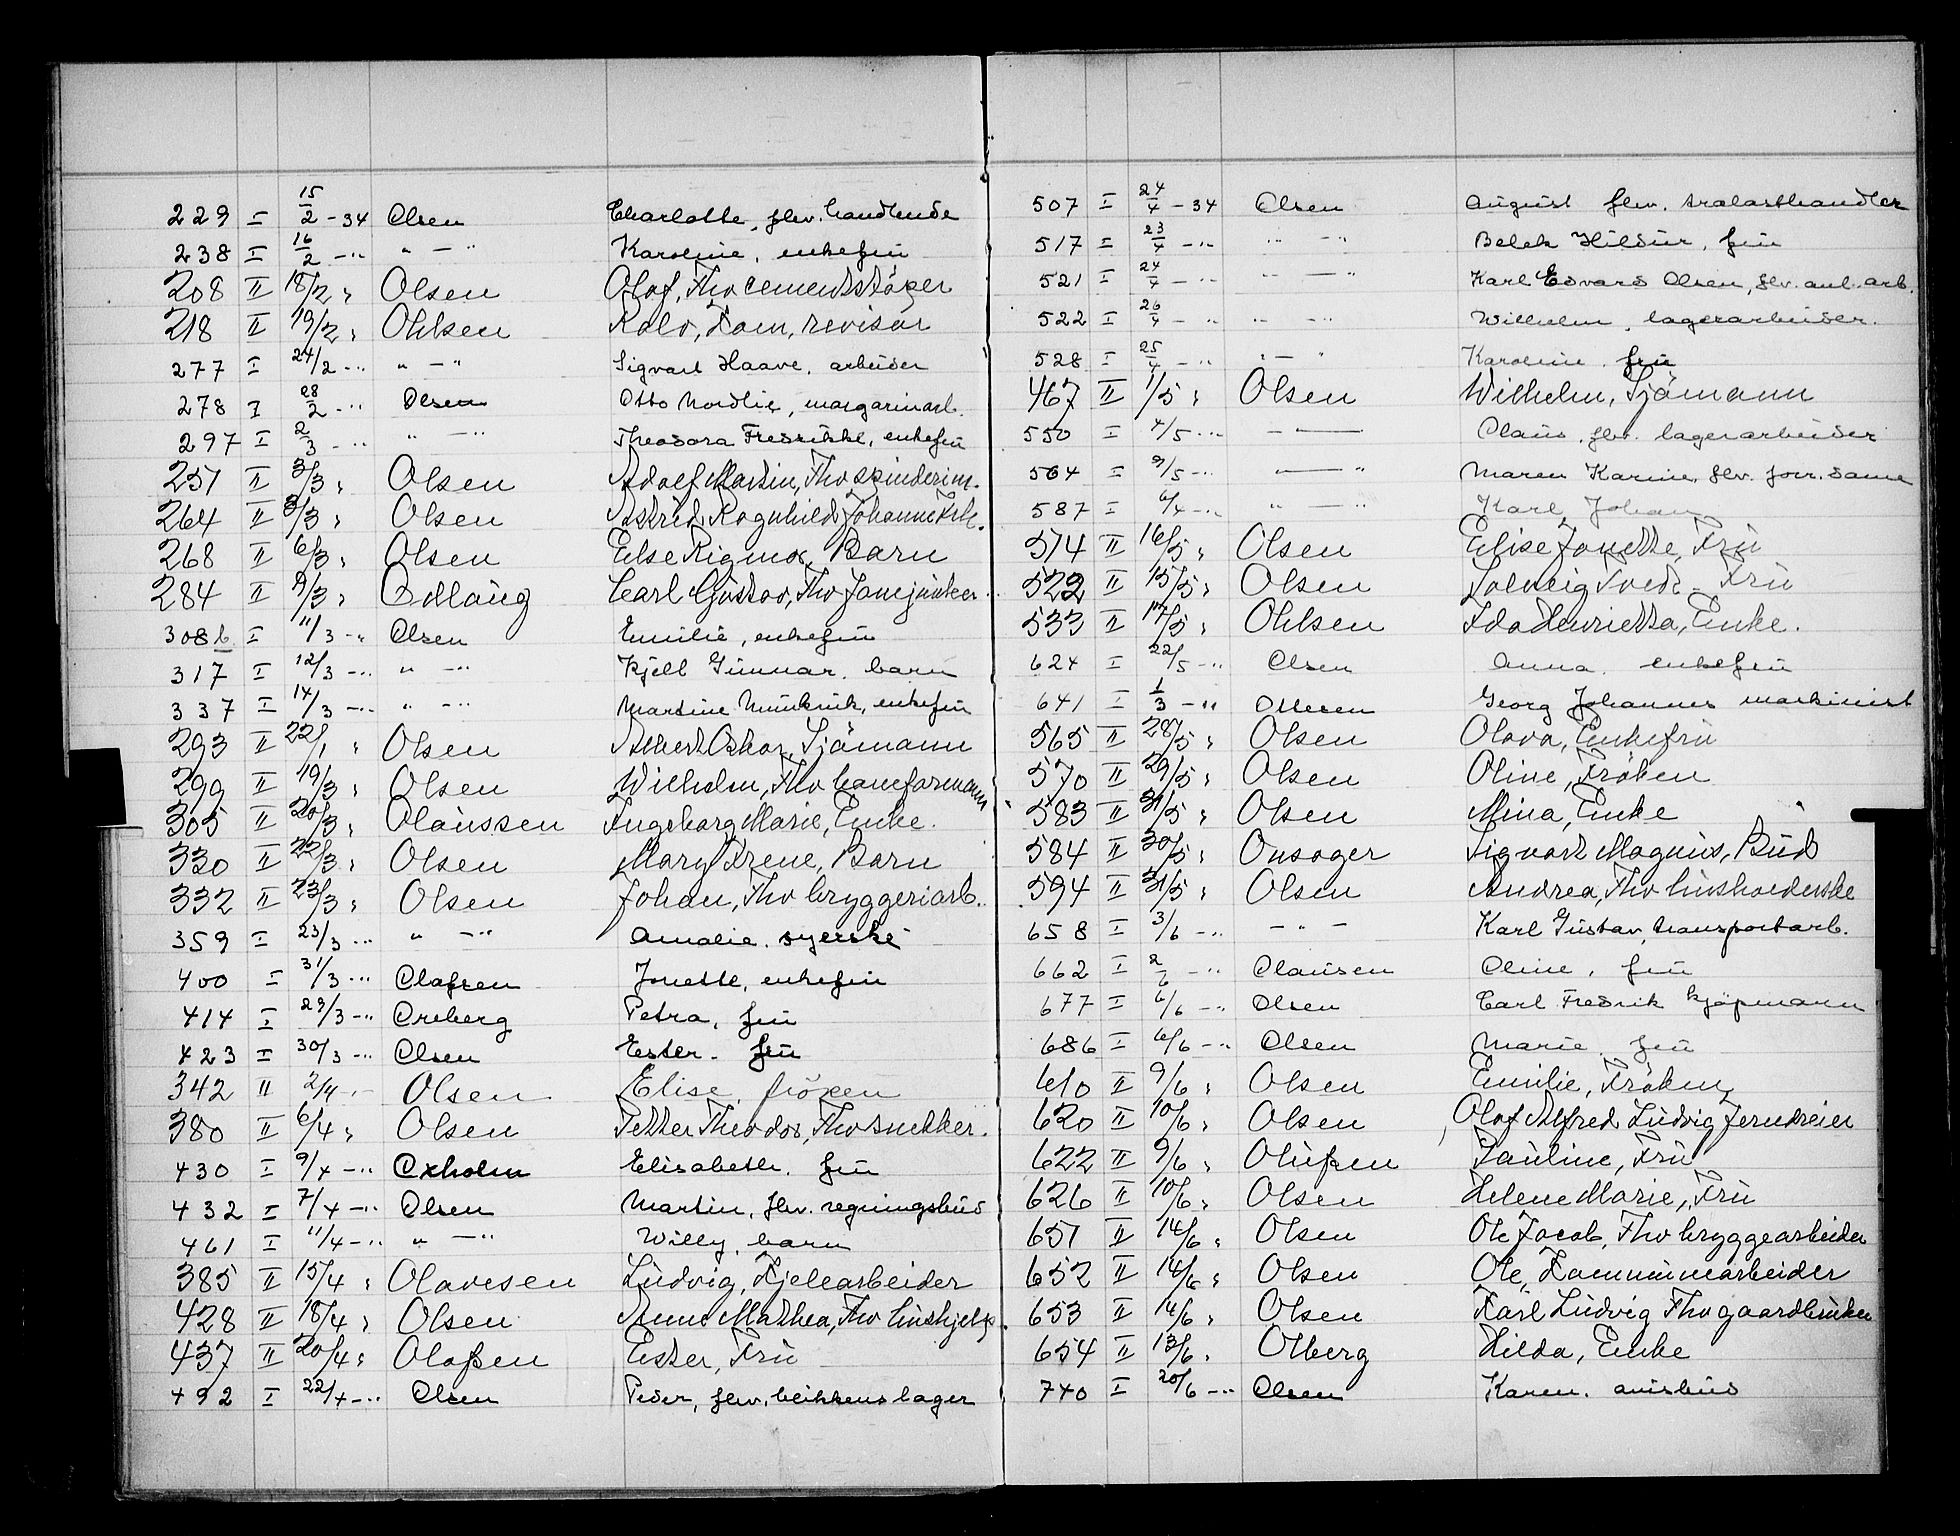 229 I 15/2 - 34 Olsen Charlotte, fhv. handlende
238 I 16/2 - " " - " Karoline, enkefru
208 II 18/2 " Olsen Olaf, Fhv cementstøper
218 II 19/2 " Ohlsen Rolv, Kom, revisor
277 I 24/2 - " " - " Sigvart Haave, arbeider
278 I 28/2 - " Olsen Otto Nordlie, margarinarb.
297 I 2/3 - " " - " Theodora Fredrikke, enkefru
257 II 3/3 " Olsen Adolf Martin, Fhv spinderim.
264 II 3/3 " Olsen Astrid Ragnhild Johanne Frk.
268 II 6/3 " Olsen Else Rigmor, Barn
284 II 9/3 " Odlaug Carl Gustav, Fhv
308 b I 11/3 - " Olsen Emilie, enkefru
317 I 12/3 - " " - " Kjell Gunnar, barn
337 I 14/3 - " " - " Martine, enkefru
293 II 22/1 " Olsen Albert Oskar, Sjömann
299 II 19/3 " Olsen Wilhelm, Fhv baneformann
305 II 20/3 " Olaussen Ingeborg Marie, Enke.
330 II 22/3 " Olsen Mary Irene, Barn
332 II 23/3 " Olsen Johan, Fhv bryggeriarb.
359 I 23/3 - " " - " Amalie, syerske
400 I 31/3 - " Olafsen Jonette, enkefru
414 I 29/3 - " Oreberg Petra, fru
423 I 30/3 - " Olsen Ester - fru
342 II 2/4 - Olsen Elise, frøken
380 II 6/4 " Olsen Petter Theodor, Fhv snekker.
430 I 9/4 - " Oxholm Elisabeth, fru
432 I 7/4 - " Olsen Martin, fhv. regningsbud
461 I 11/4 - " " - " Willy, barn
385 II 15/4 " Olavesen Ludvig, Kjelearbeider
428 II 18/4 " Olsen Anne Mathea, Fhv hushjelp.
437 II 20/4 " Olaßen Ester, Fru
492 I 22/4 - " Olsen Peder, fhv. blikkenslager
507 I 24/4 - 34 Olsen August fhv. trælasthandler
517 I 23/4 - " " - " Hildur, fru
521 I 24/4 - " " - " Karl Edvard Olsen, fhv. anl. arb.
522 I 26/4 - " " - " Wilhelm, lagerarbeider.
528 I 25/4 - " " - " Karoline, fru
467 II 1/5 " Olsen Wilhelm, Sjömann
550 I 4/5 - " - Claus, fhv. lagerarbeider
564 I 9/5 - " " - " Maren Karine, fhv. forr. dame
587 I 6/4 - " " - " Karl Johan
514 II 16/5 " Olsen Elise Jonette, Fru
522 II 15/5 " Olsen Solveig Tvedt - Fru
533 II 17/5 " Ohlsen Ida Henrietta, Enke.
624 I 22/5 - " Olsen Anna enkefru
641 I 1/3 - " Ottesen Georg Johannes maskinist
565 II 28/5 " Olsen Olava, Enkefru
570 II 29/5 " Olsen Oline, Fröken
583 II 31/5 " Olsen Mina, Enke
584 II 30/5 " Onsager Sigvart Magnus, Bud
594 II 31/5 " Olsen Andrea, Fhv husholderske
658 I 3/6 - " - " - Karl Gustav, transportarb.
662 I 2/6 - " Clausen Oline, fru
677 I 6/6 - " Olsen Carl Fredrik kjøpmann
686 I 6/6 - " Olsen Marie fru
610 II 9/6 " Olsen Emilie, Fröken
620 II 10/6 " Olsen Olaf Alfred Ludvig Jerndreier
622 II 9/6 " Olußen Pauline, Fru
626 II 10/6 " Olsen Helene Marie, Fru
651 II 14/6 " Olsen Ole Jacob, Fhv bryggearbeider
652 II 14/6 " Olsen Ole, Kommunearbeider
653 II 14/6 " Olsen Karl Ludvig Fhv gaardbruker
654 II 13/6 " Olberg Hilda, Enke
740 I 20/6 - " Olsen Karen, avisbud